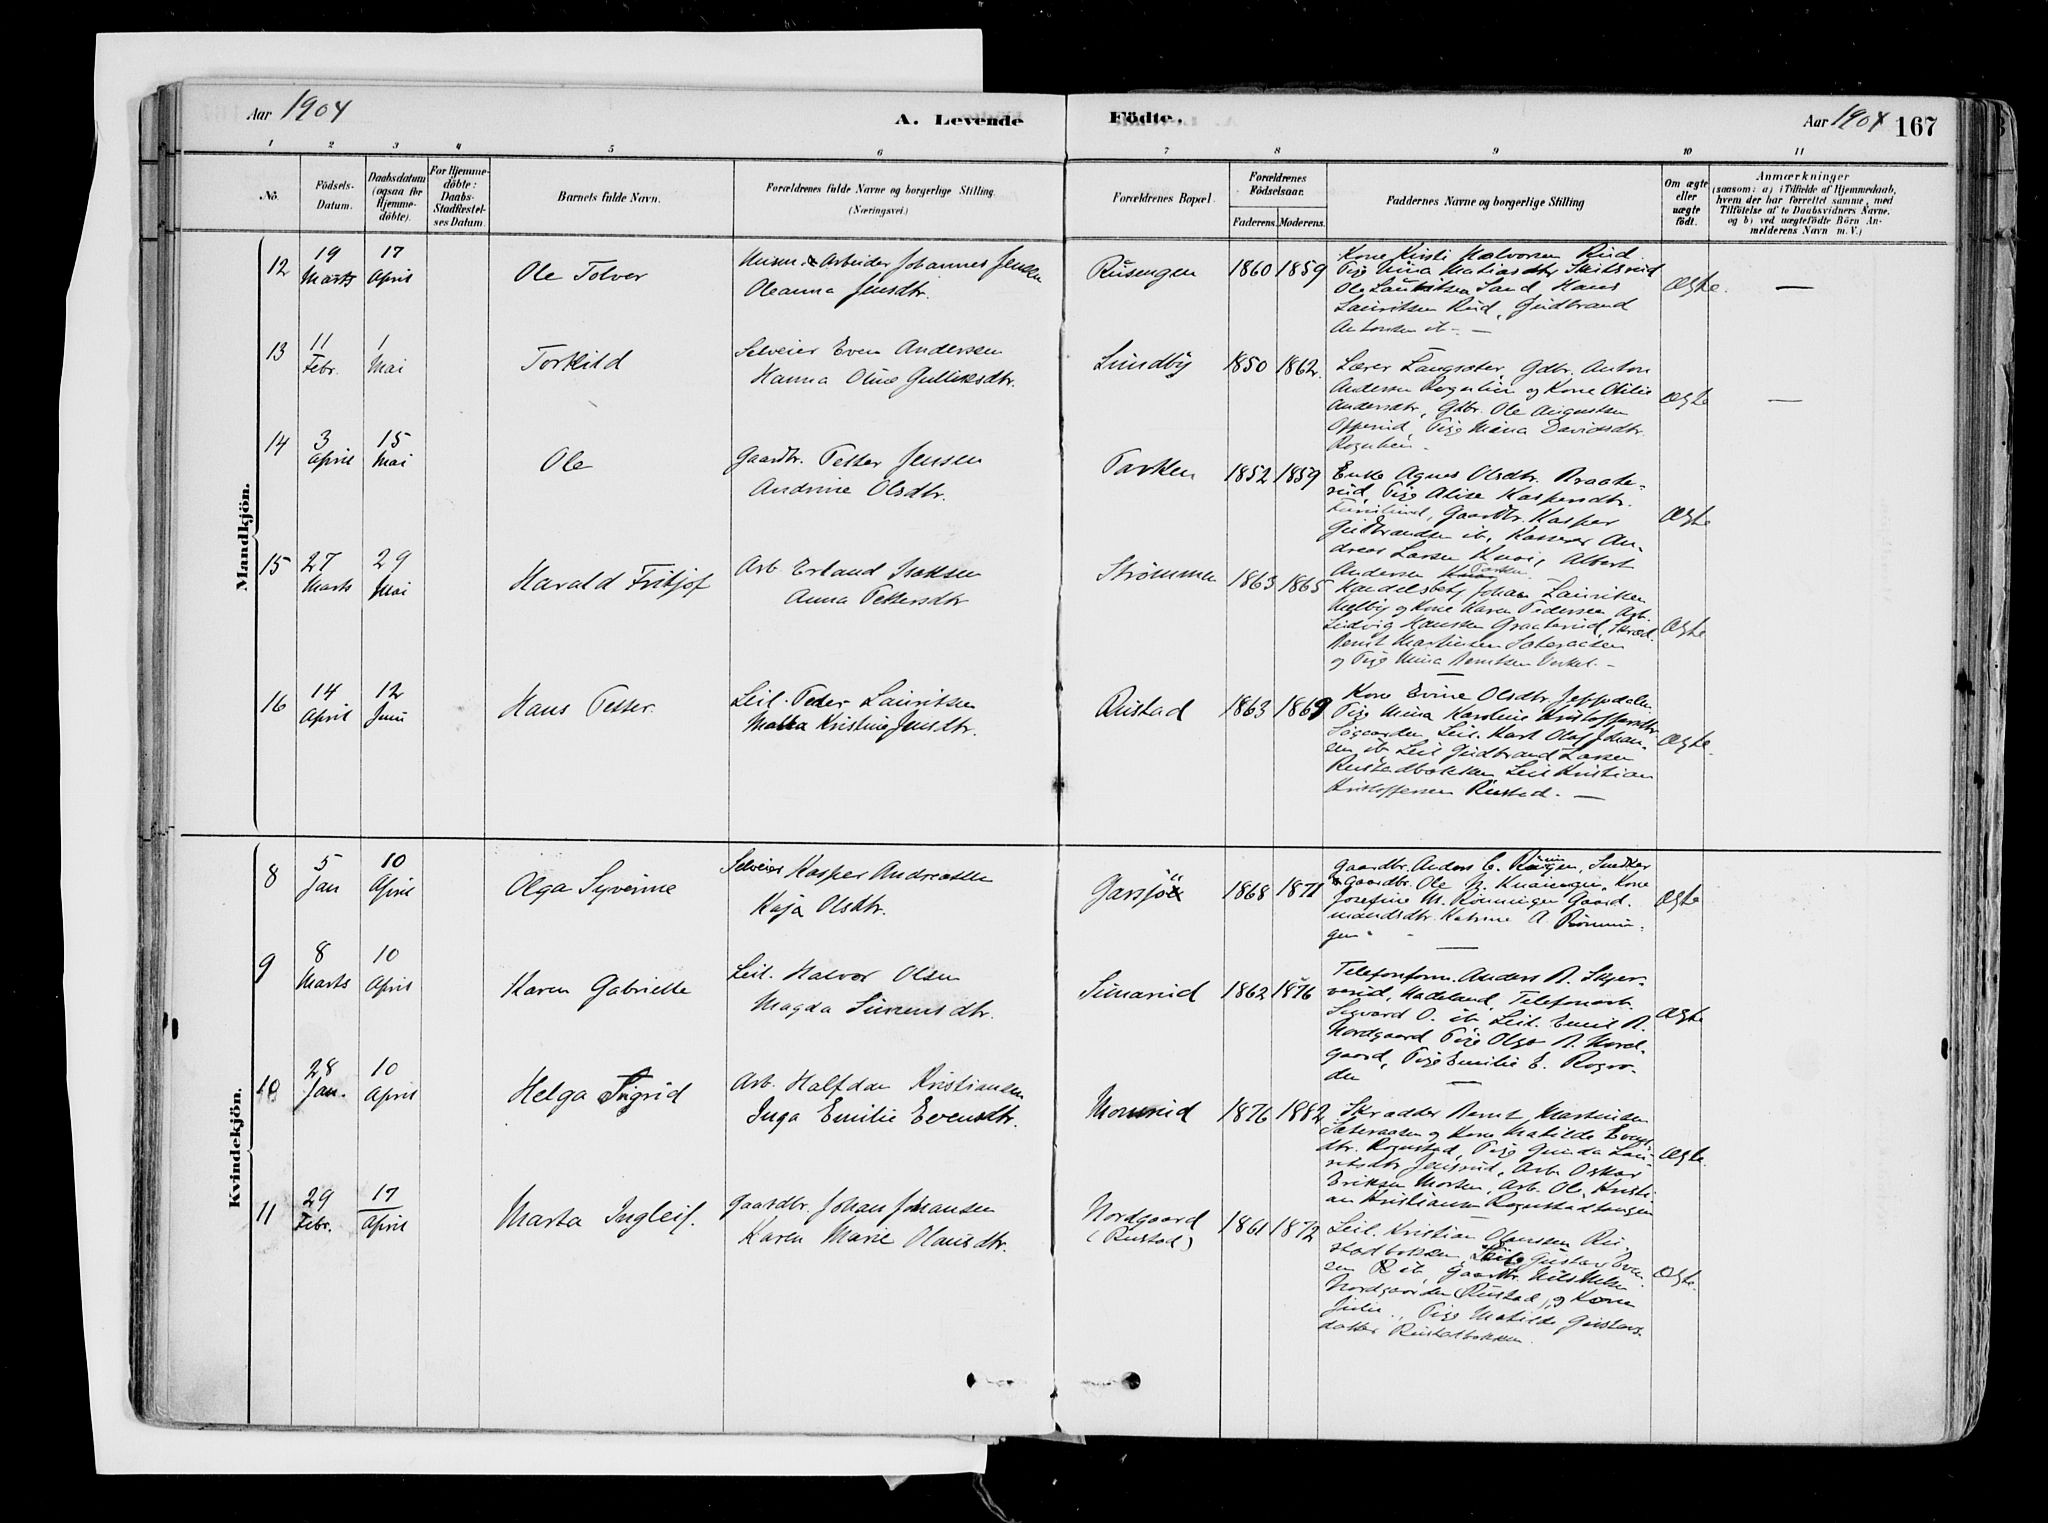 Aar 1904
A. Levende
Födte.
Aar 1904 167
1 2 3 4 5 6 7 8 9 10 11
No.
Födsels-
Datum.
Daabsdatum
(ogsaa för
Hjemme-
döbte).
For Hjemme-
döbte:
Daabs-
Stadfæstel-
ses Datum.
Barnets fulde Navn.
Forældrenes fulde Navne og borgerlige Stilling.
(Næringsvei.)
Forældrenes Bopæl.
Forældrenes
Födselsaar.
Faderens. Moderens.
Faddernes Navne og borgerlige Stilling
Om ægte
eller
uægte
födt.
Anmærkninger
(saasom: a) i Tilfælde af Hjemmedaab,
hvem der har forrettet samme, med
Tilföielse af to Daabsvidners Navne.
og b) ved uægtefödte Börn An-
melderens Navn m. V.)
Mandkjön.
12 19 Marts 17 April Ole Tolver
Arbeider Johannes Jensen
Oleanna Jensdtr.
Rusengen 1860 1859
Kone Kirsti Halvorsen Rud
Pige Mina Matiasdtr.
Ole Lauritsen Sand Hans
Lauritsen Rud, Gudbrand
Antonsen ib. —
Ægte. —
13 11 Febr. 1 Mai Torkild
Selveier Even Andersen
Hanna Oline Gulliksdtr.
Lundby 1850 1862.
Lærer Langsæter, Gdbr. Anton
Andersen Rognlien og Kone Otilie
Andersdtr, Gdbr. Ole Augustsen
Opperud, Pige Mina Davidsdtr.
Rognlien.
Ægte —
14 3 April 15 Mai Ole
Gaardbr. Petter Jensen
Andrine Olsdtr.
Parken 1852 1859
Enke Agnes Olsdtr. Braate-
rud, Pige Alise Kaspersdtr.
Gaardbr. Kasper
Gudbrandsen ib, Kasserer An-
dreas Larsen Knai, Albert
Andersen Parken.
Ægte
15 27 Marts 29 Mai Harald Fritjof
Arb. Erland Isaksen
Anna Pettersdtr
Strømmen 1863 1865
Handelsbetj Johan Lauritsen
Melby og Kone Karen Pedersen Arb.
Ludvig Hansen Graaterud, Skræd.
Bernt Martinsen Sæteraasen
og Pige Mina Berntsen —
Ægte.
16 14 April 12 Juni Hans Petter.
Leil. Peder Lauritsen
Matea Kristine Jensdtr.
Rustad 1863 1869
Kone Evine Olsdtr Jeppedalen
Pige Mina Karoline Kristoffersdtr.
Søgaarden Leil. Karl Olaf Johan-
sen ib Leil Gudbrand Larsen
Rustadbakken Leil Kristian
Kristoffersen Rustad. —
Ægte.
Kvindekjön.
8 5 Jan 10 April Olga Syverine
Selveier Kasper Andreassen
Kaja Olsdtr.
Garsjö 1868 1871
Gaardbr. Anders C. Snedker
& Gaardbr. Ole Kone
Josefine M. Rönningen Gaard-
mandsdtr. Katrine A. Rönnin-
gen.
Ægte
9 8 Marts 10 April Karen Gabrielle
Leil. Halvor Olsen
Magda Simensdtr.
Simarud 1862 1876
Telefonform. Anders A. Skjer-
verud, Hadeland, Telefonarb.
Sigvard O. ib Leil. Emil A.
Nordgaard Pige Olga A. Nord-
gaard, Pige Emilie E. Rogno-
den
Ægte
10 28 Jan. 10 April Helga Ingrid
Arb. Halfdan Kristiansen
Inga Emilie Evensdtr.
Monsrud 1876 1882
Skrædder Bernt Martinsen
Sæteraasen og Kone Matilde Evens-
dtr. Rognstad, Pige Gunda Lau-
ritsdtr Jensrud, Arb. Oskar
Eriksen Morken, Arb. Ole Kristi-
an Kristiansen Rognstadtangen
Ægte.
11 29 Febr. 17 April Marta Ingleif.
Gaardbr. Johan Johansen
Karen Marie Olausdtr.
Nordgaard
(Rustad) 1861 1872
Leil. Kristian Olaussen Ru-
stadbakken, Leil Gustav Even-
sen ib, Gaardbr. Nils Nilsen
Nordgaarden (Rustad), og Kone
Julie, Pige Matilde Gustavs-
datter Rustadbakken.
Ægte.